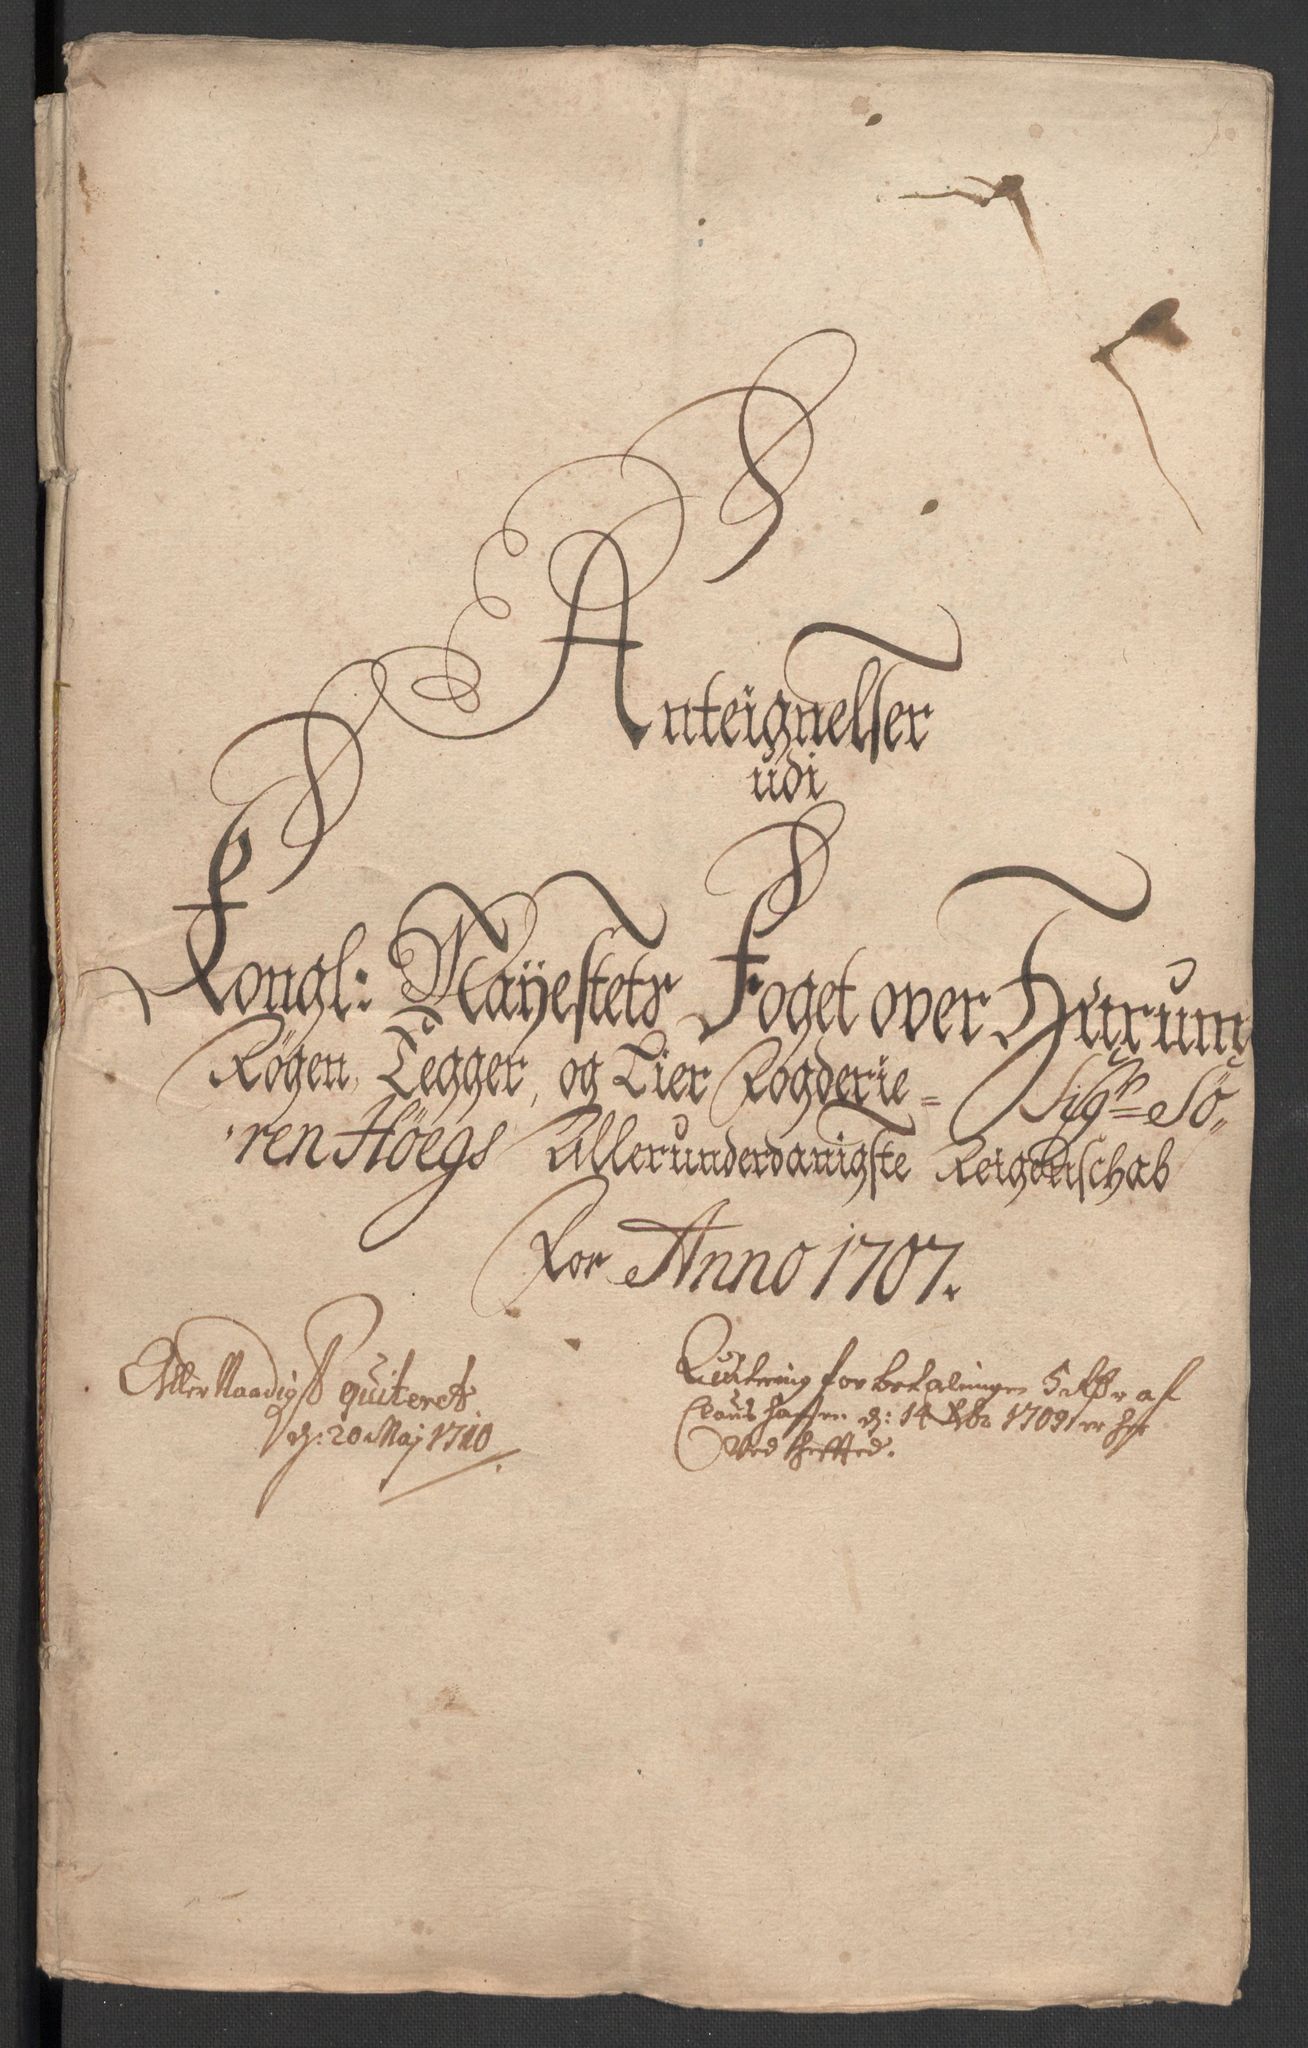 Anteignelser
udi
Kongl: Mayestets Foget over Hurum
Røgen, Egger, og Lier Fogderie = Sigr Sö„
ren Höegs Allerunderdanigste Reigenschab
For Anno 1707.
Aller Naadigst quiteret
d: 20 Maj 1710
Quitering for betalingen 5 af
Claus d: 14 1709 er her
Ved hefted.